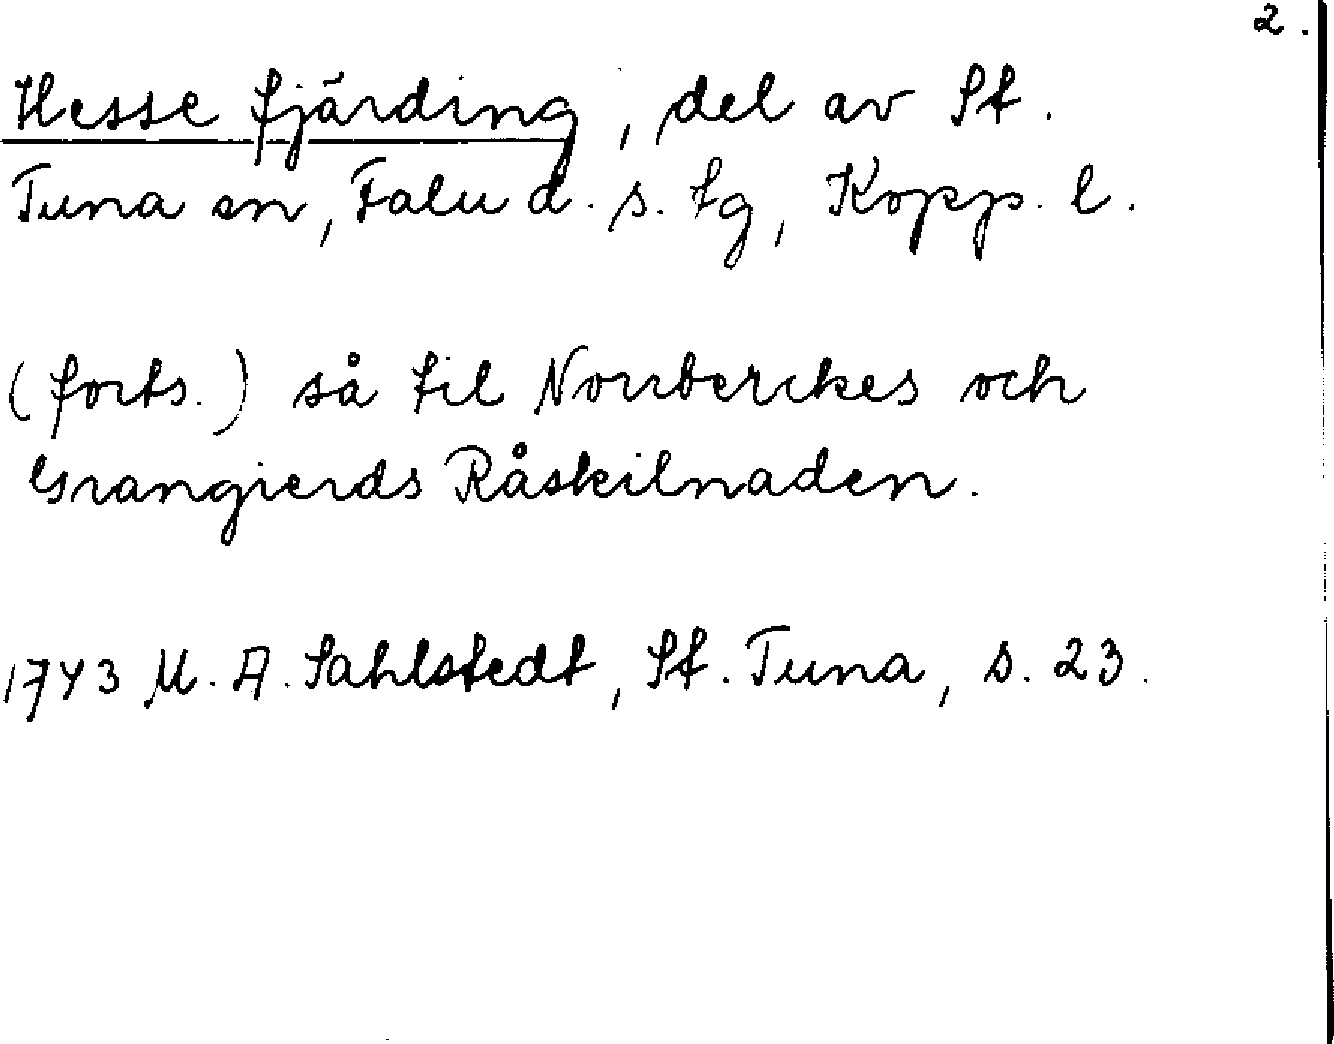 2.
Hesse fjärding, del av St.
Tuna sn, Falu d. s. tg, Kopp. l.
(forts.) så til Norrberckes och
Grangierds Råskilnaden.
1743 M. A. Sahlstedt, St. Tuna, s. 23.